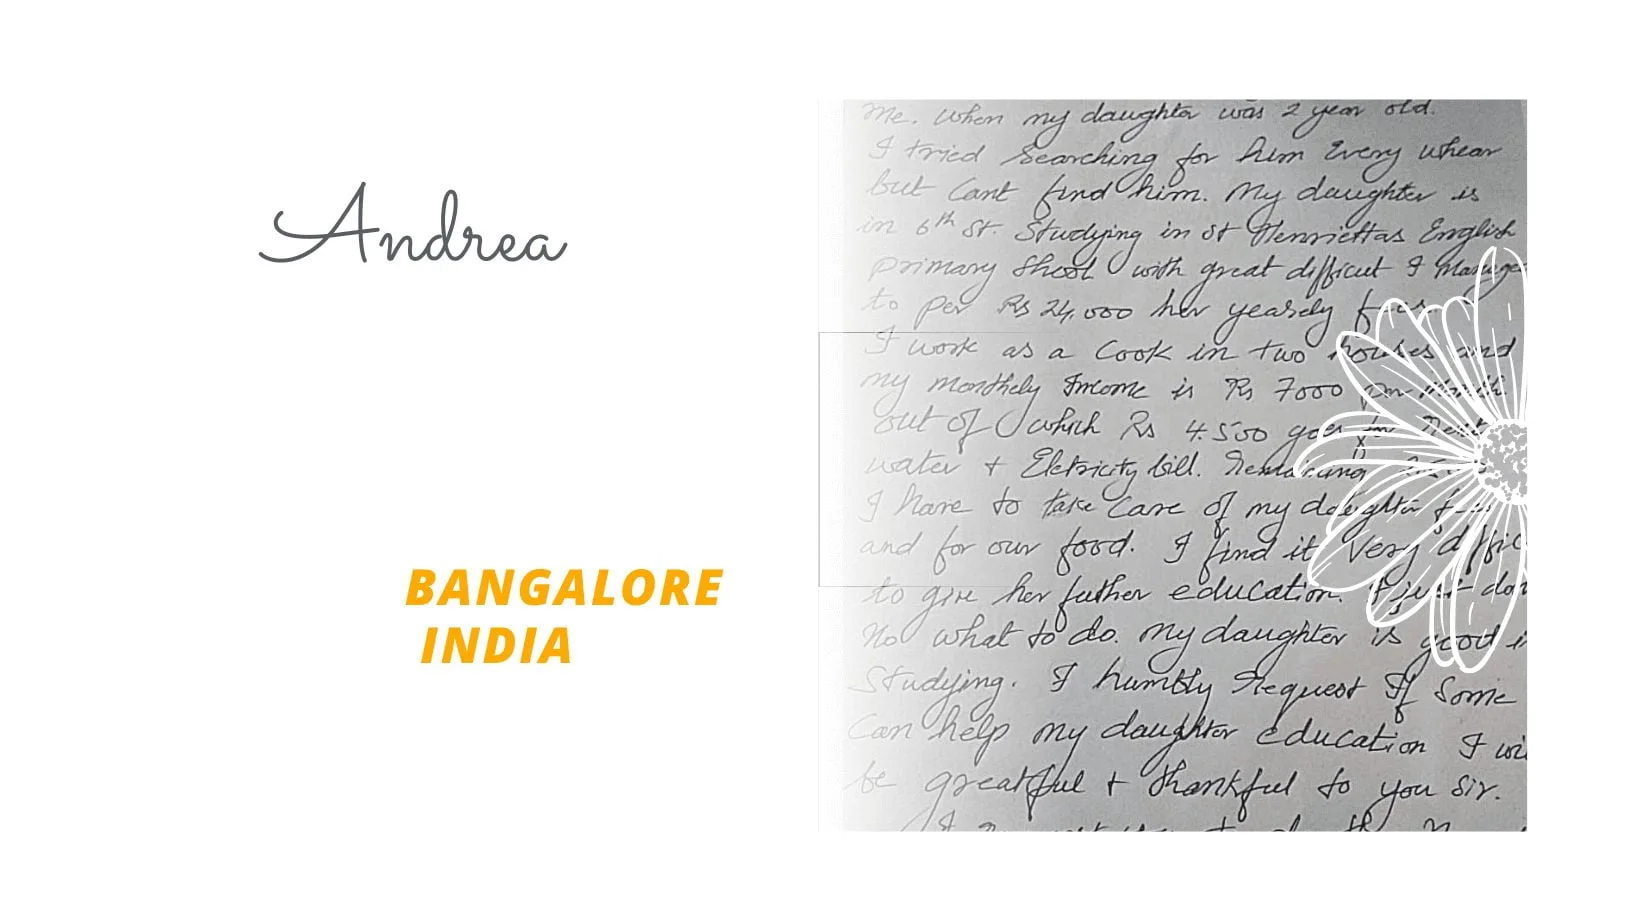 Andrea
BANGALORE
INDIA
Me. when my daughter was 2 year old.
I tried Searching for him Every whear
but Cant find him. My daughter is
in 6th st. Studying in st Henriettas English
primary Shool with great difficut I manage
to per Rs 24,000 her yearely fees.
I work as a Cook in two houses and
my monthely Income is Rs 7000 per month
out of which Rs 4.500 goes for Rent
water + Eletricity bill. Remaining
I have to take Care of my daughter
and for our food. I find it very diffic
to give her futher education. I just don
No what to do. My daughter is good in
Studying. I humbly request If Some
Can help my daughter education I wi
be greatful + thankful to you Sir.